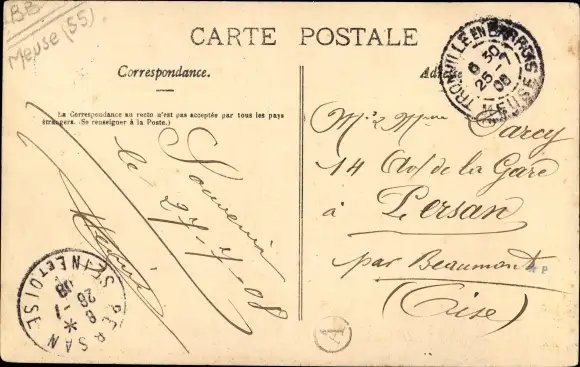 BB
Meuse (55)
CARTE POSTALE
Correspondance.
La Correspondance au recto n'est pas acceptée par tous les pays
étrangers. (Se renseigner à la Poste.)
Souvenir
le 27-7-08
TRONVILLE EN BARROIS
MEUSE
6 30
25 - 7
08
Mr & Mme Darcy
14 Av de la Gare
à Persan
par Beaumont
(Oise)
PERSAN
SEINE ET OISE
8
26 - 7
08
A